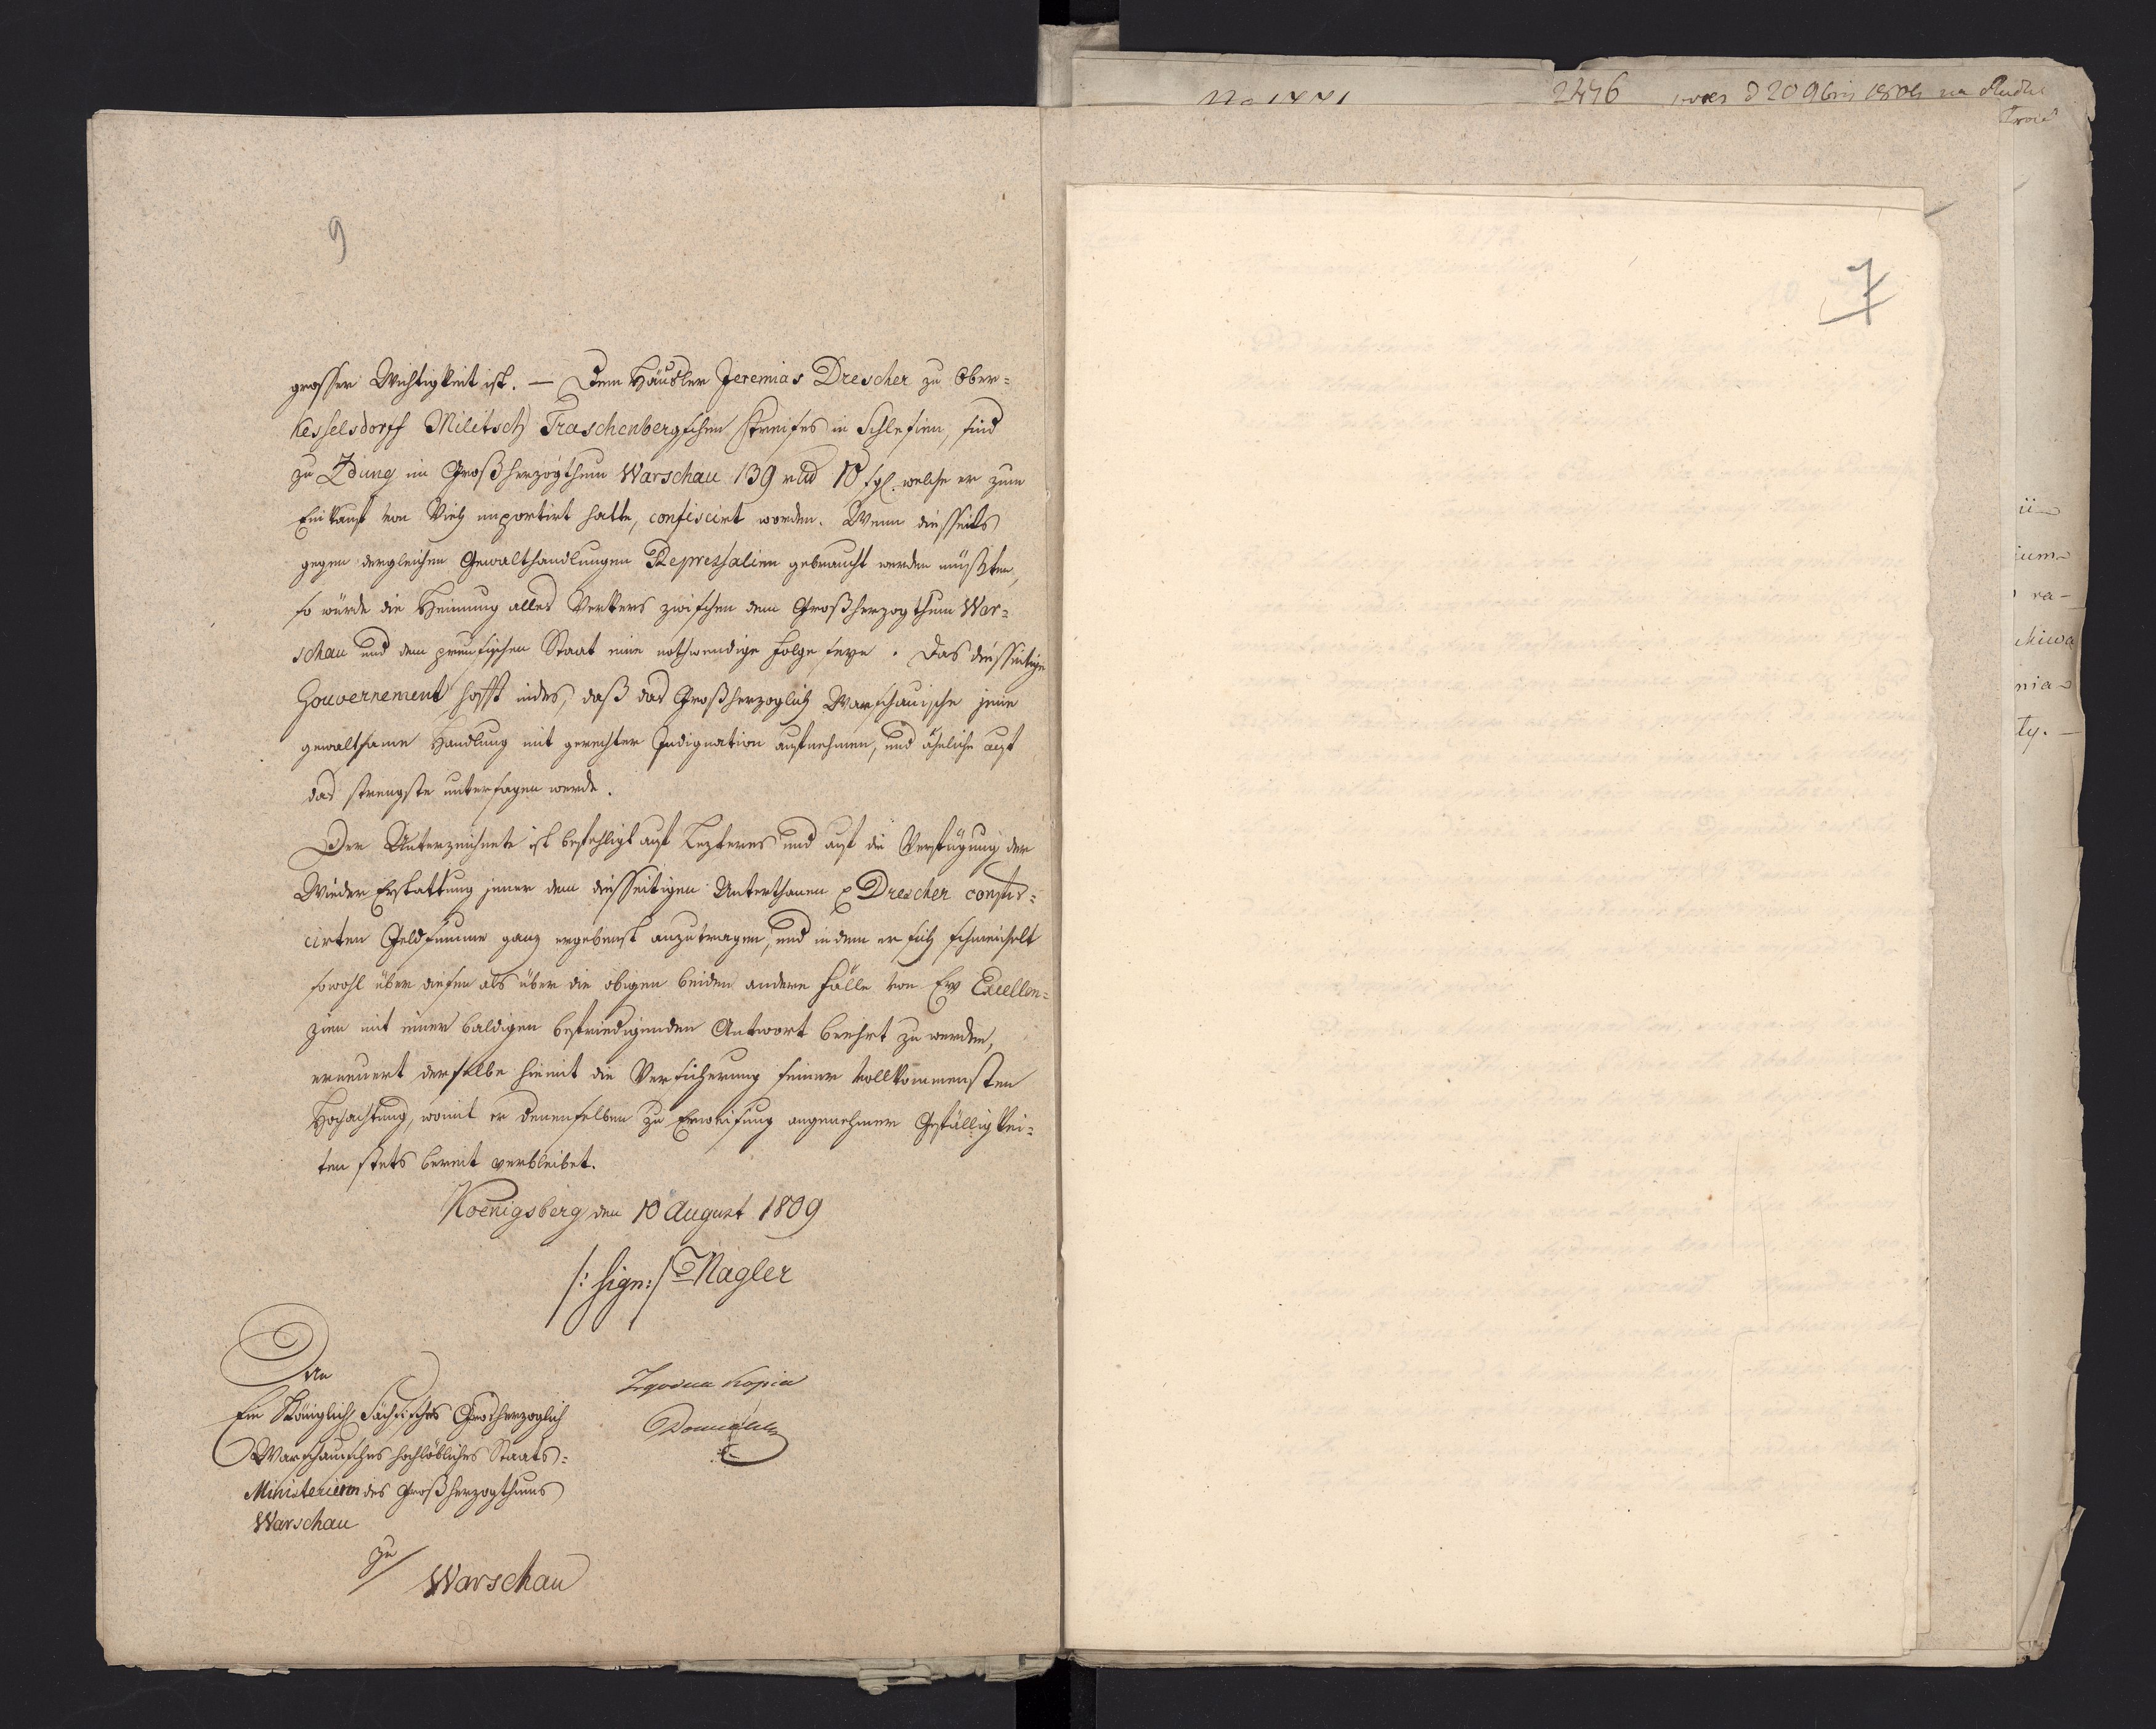 9
grosser Wichtigkeit ist. — Dem Häusler Jeremias Drescher zu Ober=
Kesselsdorff Militsch Traschenbergschen Kreises in Schlesien, sind
zu Zduny im Großherzogthum Warschau 139 10 sgl. welche er zum
Einkauf von Vieh importirt hatte, confiscirt worden. Wenn diesseits
gegen dergleichen Gewalthandlungen Repressalien gebraucht werden müßten,
so würde die Hemmung alles Verkers zwischen dem Großherzogthum War=
schau und dem preusischen Staat eine nothwendige Folge seyn. Das diesseitige
Gouvernement hofft indes, daß das Großherzoglich Warschauische jene
gewaltsame Handlung mit gerechter Indignation aufnehmen, und ähnliche auf
das strengste untersagen werde.
Der Unterzeichnete ist befehligt auf Lezteres und auf die Verfügung der
Wieder Erstattung jener dem diesseitigen Unterthanen p Drescher confis=
cirten Geldsumme ganz ergebenst anzutragen, und indem er sich schmeichelt
sowohl über diesen als über die obigen beiden andern Fälle von Ew Excellen=
zien mit einer baldigen befriedigenden Antwort beehrt zu werden,
erneuert derselbe hiemit die Versicherung seiner vollkommensten
Hochachtung, womit er denenselben zu Erweisung angenehmer Gefälligkei=
ten stets bereit verbleibet.
Koenigsberg den 10 August 1809
/: sign: / Nagler
An
Ein Königlich Sächsisches Grosherzoglich
Warschausches hochlöbliches Staats=
Ministerium des Großherzogthums
Warschau
zu
Warschau
Zgodna kopia
2446
7
ium
ra-
chiwa
nia
ty. —